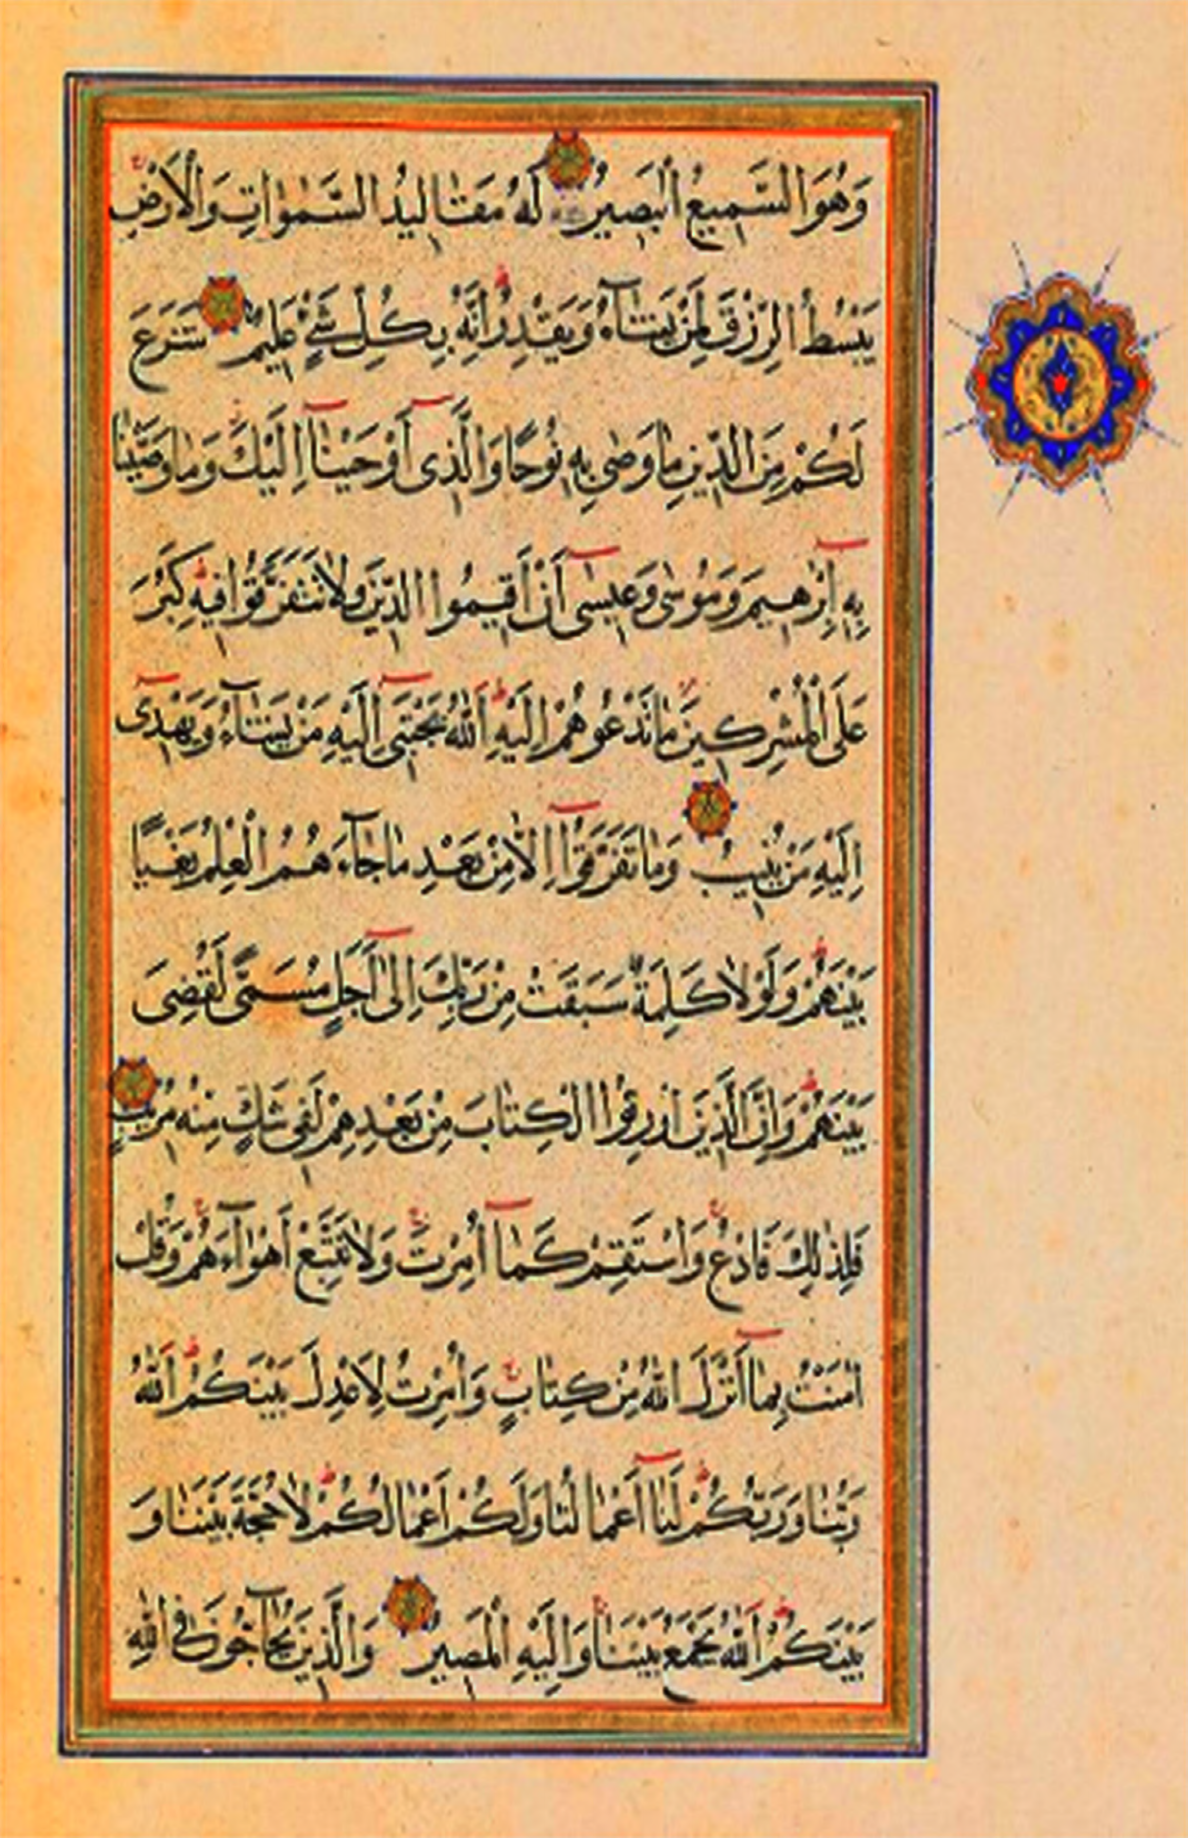 وَهُوَ السَّمِيعُ الْبَصِيرُ لَهُ مَقَالِيدُ السَّمٰوَاتِ وَالْاَرْضِ
يَبْسُطُ الرِّزْقَ لِمَنْ يَشَاءُ وَيَقْدِرُ اِنَّهُ بِكُلِّ شَيْءٍ عَلِيمٌ شَرَعَ
لَكُمْ مِنَ الدِّينِ مَا وَصّٰى بِهِ نُوحًا وَالَّذِى اَوْحَيْنَا اِلَيْكَ وَمَا وَصَّيْنَا
بِهِ اِبْرٰهِيمَ وَمُوسٰى وَعِيسٰى اَنْ اَقِيمُوا الدِّينَ وَلَا تَتَفَرَّقُوا فِيهِ كَبُرَ
عَلَى الْمُشْرِكِينَ مَا تَدْعُوهُمْ اِلَيْهِ اَللّٰهُ يَجْتَبِى اِلَيْهِ مَنْ يَشَاءُ وَيَهْدِى
اِلَيْهِ مَنْ يُنِيبُ وَمَا تَفَرَّقُوا اِلَّا مِنْ بَعْدِ مَا جَاءَهُمُ الْعِلْمُ بَغْيًا
بَيْنَهُمْ وَلَوْلَا كَلِمَةٌ سَبَقَتْ مِنْ رَبِّكَ اِلٰى اَجَلٍ مُسَمًّى لَقُضِىَ
بَيْنَهُمْ وَاِنَّ الَّذِينَ اُورِثُوا الْكِتَابَ مِنْ بَعْدِهِمْ لَفِى شَكٍّ مِنْهُ مُرِيبٍ
فَلِذٰلِكَ فَادْعُ وَاسْتَقِمْ كَمَا اُمِرْتَ وَلَا تَتَّبِعْ اَهْوَاءَهُمْ وَقُلْ
اٰمَنْتُ بِمَا اَنْزَلَ اللّٰهُ مِنْ كِتَابٍ وَاُمِرْتُ لِاَعْدِلَ بَيْنَكُمْ اَللّٰهُ
رَبُّنَا وَرَبُّكُمْ لَنَا اَعْمَالُنَا وَلَكُمْ اَعْمَالُكُمْ لَا حُجَّةَ بَيْنَنَا وَ
بَيْنَكُمْ اَللّٰهُ يَجْمَعُ بَيْنَنَا وَاِلَيْهِ الْمَصِيرُ وَالَّذِينَ يُحَاجُّونَ فِى اللّٰهِ